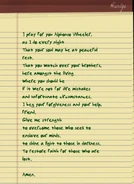 I pray for you Alphonse Wheeler,
as I do every night
That your soul may be at peaceful
rest.
That you watch over your brothers,
here amongst the living
Where you should be
if it were not for life's mistakes
and unfortunate circumstances.
I beg your forgiveness and your help,
friend.
Give me strength
to overcome those who seek to
enslave our minds.
to shine a light to those in darkness.
To restore faith for those who are
lost.
Amen.